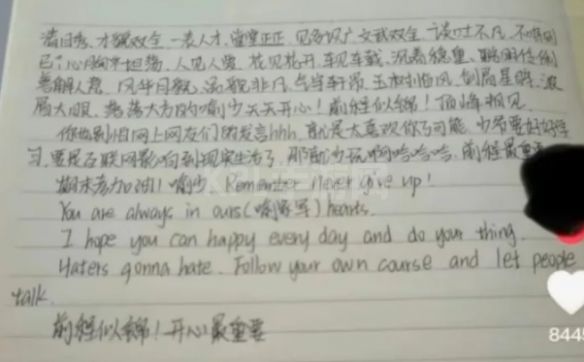 清目秀、才貌双全、一表人才、堂堂正正、见多识广、文武双全、谈吐不凡、不同
心胸坦荡、人见人爱、花见花开、车见车载、沉着稳重、聪明伶俐
风华月貌、汤貌非凡、气宇轩昂、玉树临风、剑眉星眸、浓
眉大眼、落落大方的喻少天天开心！前程似锦！顶峰相见
你也别怕网上网友们的发言hhh，就是太喜欢你了可能，也希望好好学
习，要是互联网影响到现实生活了，那就少玩啊哈哈哈，前程最重要
期末考加油！喻少，Remember never give up!
You are always in ours(喻家军)hearts.
I hope you can happy every day and do your thing.
Haters gonna hate. Follow your own course and let people
talk.
前程似锦！开心最重要
8445